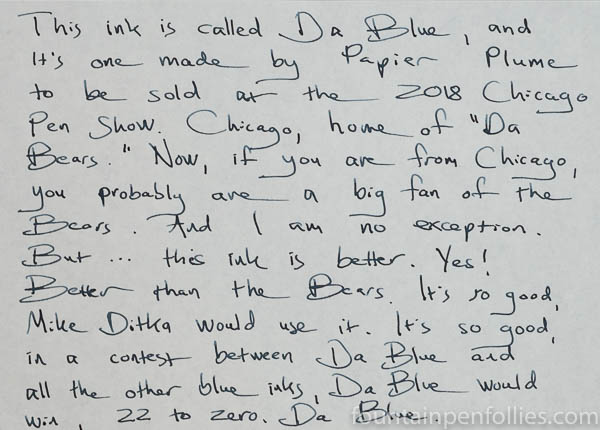 This ink is called Da Blue, and
It's one made by Papier Plume
to be sold at the 2018 Chicago
Pen Show. Chicago, home of "Da
Bears." Now, if you are from Chicago,
you probably are a big fan of the
Bears. And I am no exception.
But ... this ink is better. Yes!
Better than the Bears. It's so good,
Mike Ditka would use it. It's so good,
in a contest between Da Blue and
all the other blue inks, Da Blue would
win, 22 to zero. Da Blue.
fountainpenfollies.com